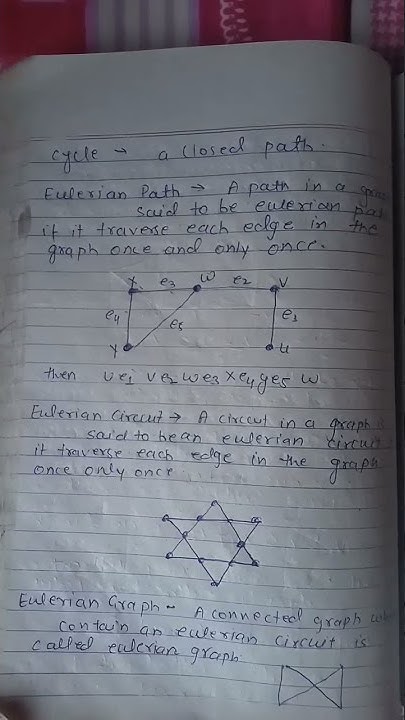 cycle → a closed path.
Eulerian Path → A path in a
said to be eulerian
if it traverse each edge in the
graph once and only once.
X e3 W e2 V
e4 e5 e1
Y U
then ue1 ve2 we3 xe4 ye5 w
Eulerian Circut → A circut in a graph is
said to be an eulerian circut
it traverse each edge in the graph
once only once.
Eulerian Graph - A connected graph
contain an eulerian circut is
called eulerian graph.